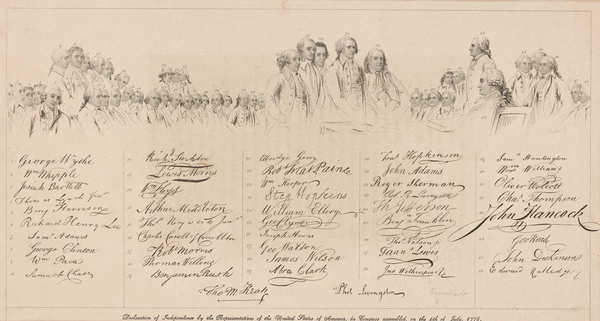 George Wythe
Wm Whipple
Josiah Bartlett
Benj Harrison
Richard Henry Lee
Saml Adams
George Clinton
Wm Paca
Samuel Chase
Richd Stockton
Lewis Morris
Wm Floyd
Arthur Middleton
Thos Heyward Junr
Charles Carroll of Carrollton
Robt Morris
Thomas Willing
Benjamin Rush
Tho M:Kean
Elbridge Gerry
Robt Treat Paine
Wm Hooper
Step Hopkins
William Ellery
Geo Clymer
Joseph Hewes
Geo Walton
James Wilson
Abra Clark
Fras Hopkinson
John Adams
Roger Sherman
Robt R Livingston
Th Jefferson
Benj Franklin
Thos Nelson jr
Frans Lewis
Jno Witherspoon
Phil Livingston
Saml Huntington
Wm Williams
Oliver Wolcott
Chas Thompson
John Hancock
Geo Read
John Dickinson
Edward Rutledge
Declaration of Independence by the Representatives of the United States of America, in Congress assembled, on the 4th of July, 1776.